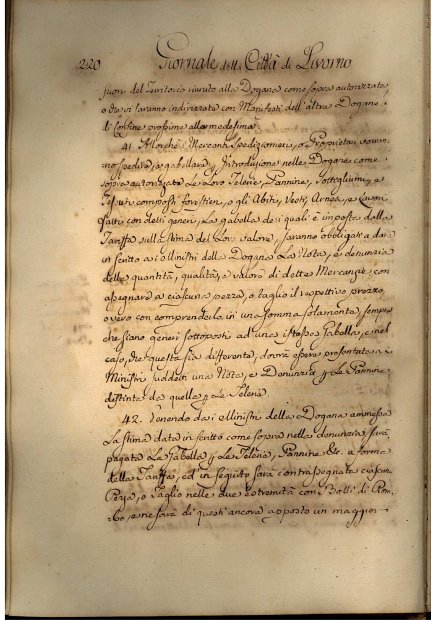 220 Giornale della Città di Livorno
fuori del Territorio riunito alla Dogana come sopra autorizzata,
o che vi saranno indirizzate con Manifesti dell'altre Dogane
di Confine prossime alla medesima.
41. Allorchè i Mercanti Spedizionieri, o Proprietari vorran-
no spedire, o gabellare p Introduzione nelle Dogane come
sopra autorizzate Le Loro Telerie, Pannine, Sottigliumi, e
Tessuti composti forestieri, o gli Abiti, Vesti, Arnesi, e Lavori
fatti con detti generi, La gabella dei quali è imposta dalla
Tariffa sulla stima del Loro valore, saranno obbligati a dare
in scritto ai Ministri della Dogana La Nota, e denunzia
delle quantità, qualità, e valore di dette Mercanzie, con
assegnare a ciascuna pezza, o taglio il respettivo prezzo,
o vero con comprenderle in una somma solamente, sempre
che siano generi sottoposti ad una istessa Gabella, e nel
caso, che questa sia differente, dovrà essere presentata ai
Ministri suddetti una Nota, e Denunzia p Le Pannine
distinta da quella p Le Telerie.
42. Venendo dai Ministri della Dogana ammessa
La stima data in scritto come sopra nella denunzia, sarà
pagata La Gabella p Le Telerie, Pannine &c. a forma
della Tariffa, ed in seguito sarà contrassegnata ciascuna
Pezza, o Taglio nelle due estremità con Bolli di Piom-
bo, e ne sarà di questi ancora apposto un maggior